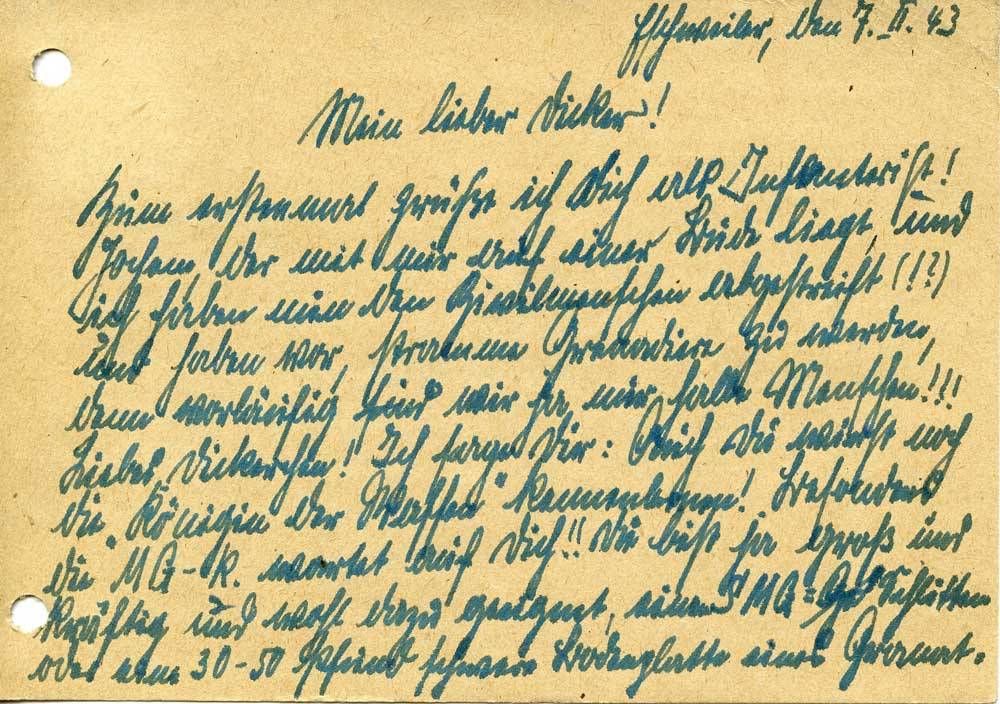 Eschweiler, den 7. II. 43
Mein lieber Dicker!
Zum erstenmal grüße ich Dich als Infanterist!
Jochem, der mit mir auf einer Bude liegt, und
ich haben nun den Zivilmenschen abgestreift (!?)
und haben vor, stramme Grenadiere zu werden,
denn vorläufig sind wir ja nur halbe Menschen!!!
Liebes Dickerchen! Ich sage Dir: Auch Du wirst noch
die „Königin der Waffen“ kennenlernen! Besonders
die MG-K. wartet auf Dich!! Du bist ja groß und
kräftig und wohl dazu geeignet, einen MG= Schlitten
oder eine 30-50 Pfund schwere Bodenplatte eines Granat-